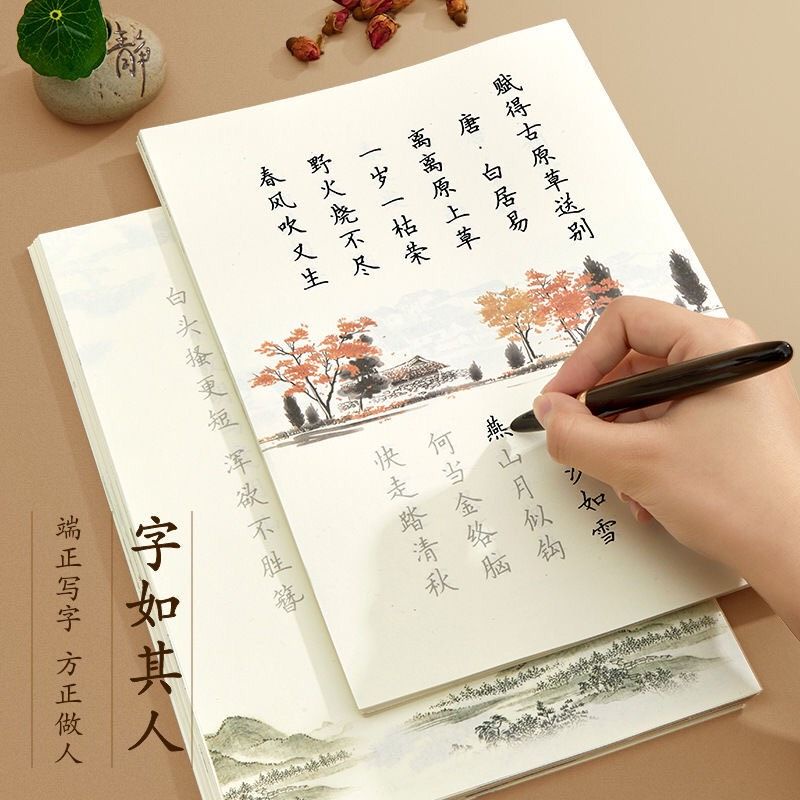 靜
赋得古原草送别
唐·白居易
离离原上草
一岁一枯荣
野火烧不尽
春风吹又生
如雪
燕山月似钩
何当金络脑
快走踏清秋
白头搔更短 浑欲不胜簪
字如其人
端正写字 方正做人